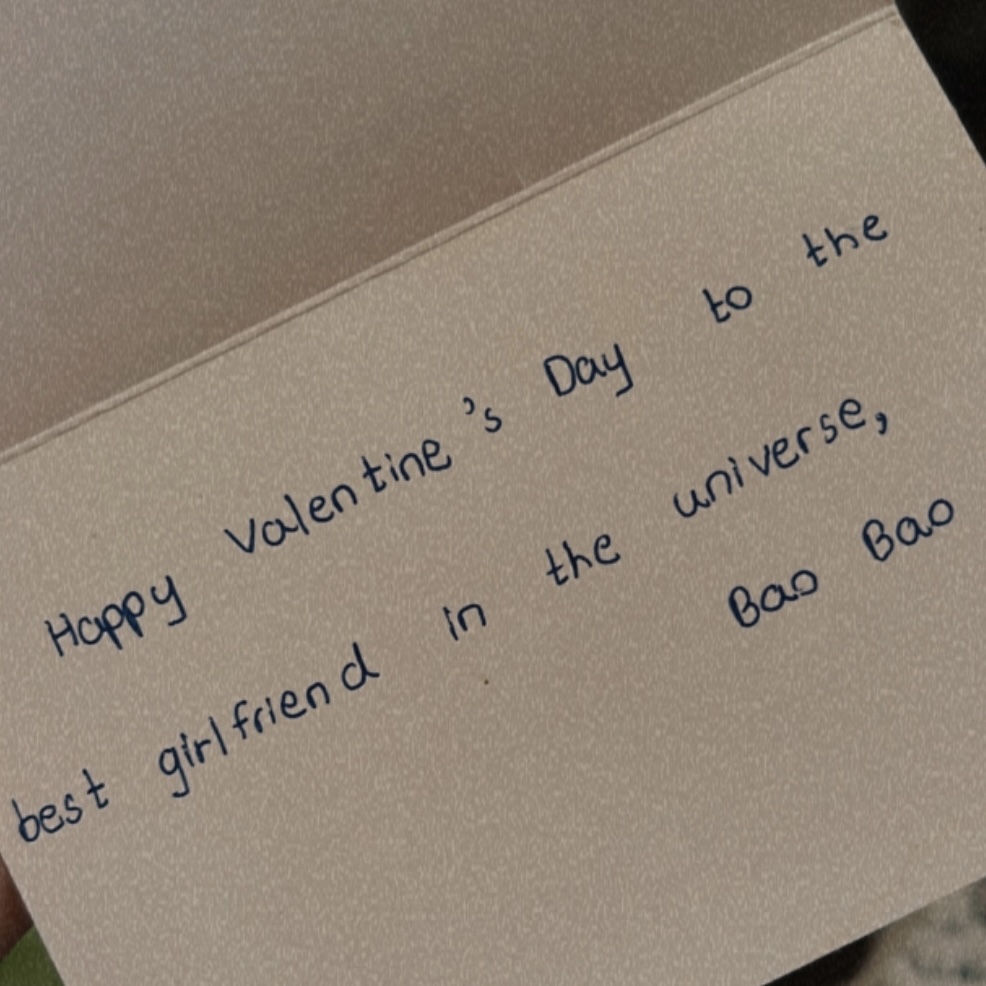 Happy Valentine's Day to the
best girlfriend in the universe,
Bao Bao